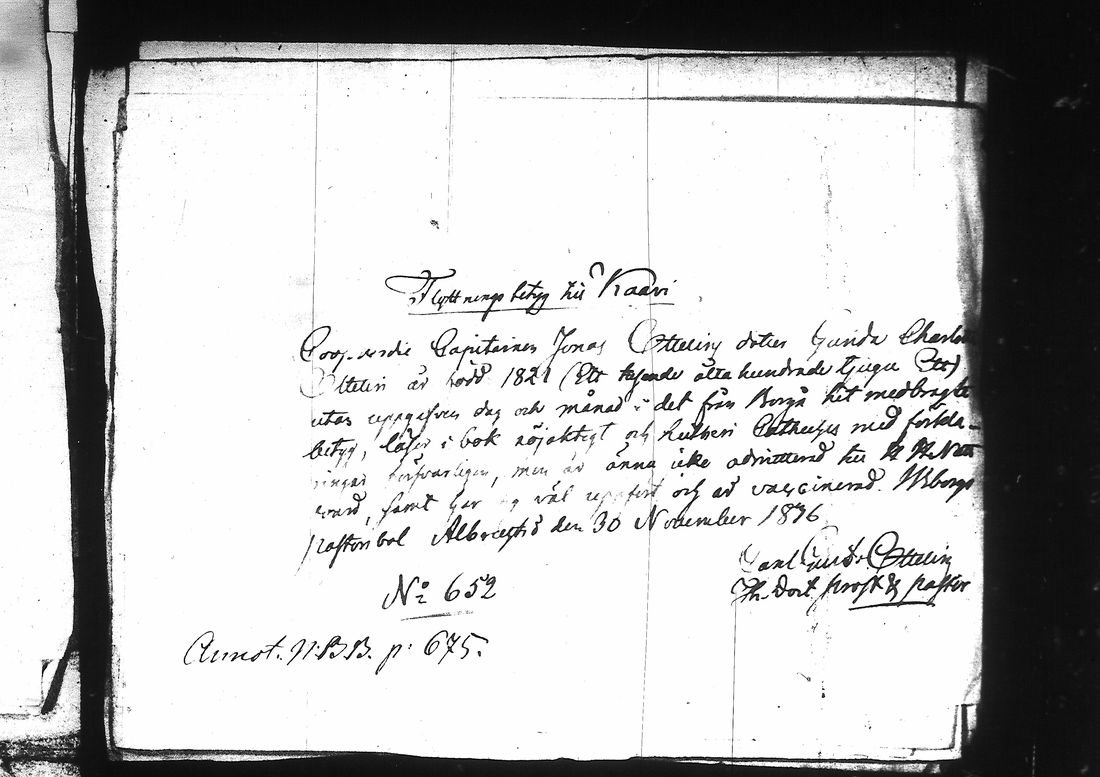 Flyttnings betyg till Kaavi
Coopverdie Capitainen Jonas Ottelins dotter Gunda Charlott
Ottelin är född 1821 (Ett tusende åtta hundrade tjugu Ett)
utan uppgifven dag och månad i det från Borgå hit medbragte
betyg, läser i bok nöjaktigt och Lutheri Cathesis med förkla-
ringar försvarligen, men är änna icke admitterad till H H Natt
ward, samt har sig väl uppfört och är vaccinerad. Wiborgs
pastorsbol Albrectsbo den 30 November 1836
Carl Gust. Ottelin
Th. Doct. prost & pastor
No 652
Annot. N.B.B. p: 675.